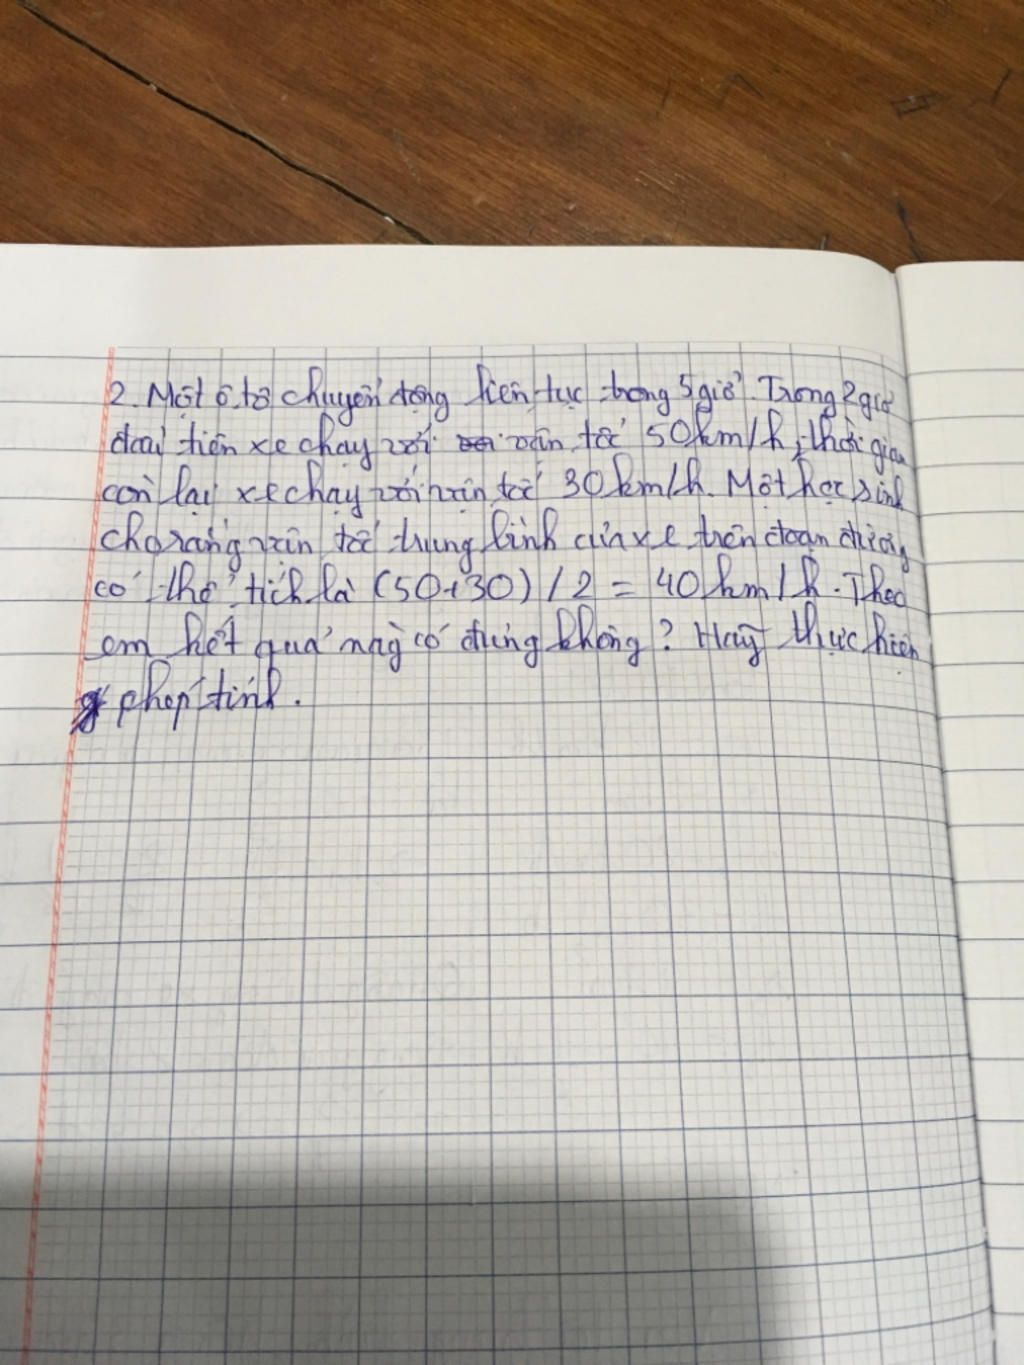 2. Một ô tô chuyển động liên tục trong 5 giờ. Trong 2 giờ
đầu tiên xe chạy với vận tốc 50km/h, thời gian
còn lại xe chạy với vận tốc 30km/h. Một học sinh
cho rằng vận tốc trung bình của xe trên đoạn đường
có thể tích là (50+30)/2 = 40km/h. Theo
em kết quả này có đúng không? Hãy thực hiện
phép tính.